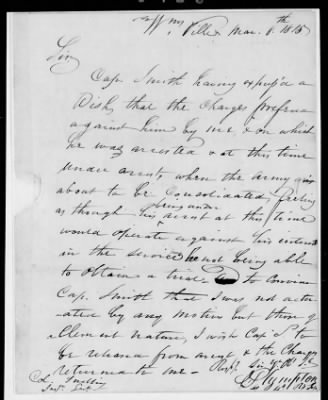 Wms Ville Mar. 8.th 1815
Sir
Cap. Smith having express'd a
Wish, that the Charges prefer'd
against him by me & on which
he was arrested & at this time
under arrest, when the Army is
about to be Consolidated, feeling
being under
as though his arrest at this time
would operate against his interest
in the service he not being able
to obtain a trial, to Convince
Cap. Smith that I was not actu-
ated by any motive but those of
Clement nature, I wish Cap. S to
be releas'd from arrest & the Charges
return'd to me - Resp. Sir Yr Ob. St
Col. Snelling
Insp. Gen.